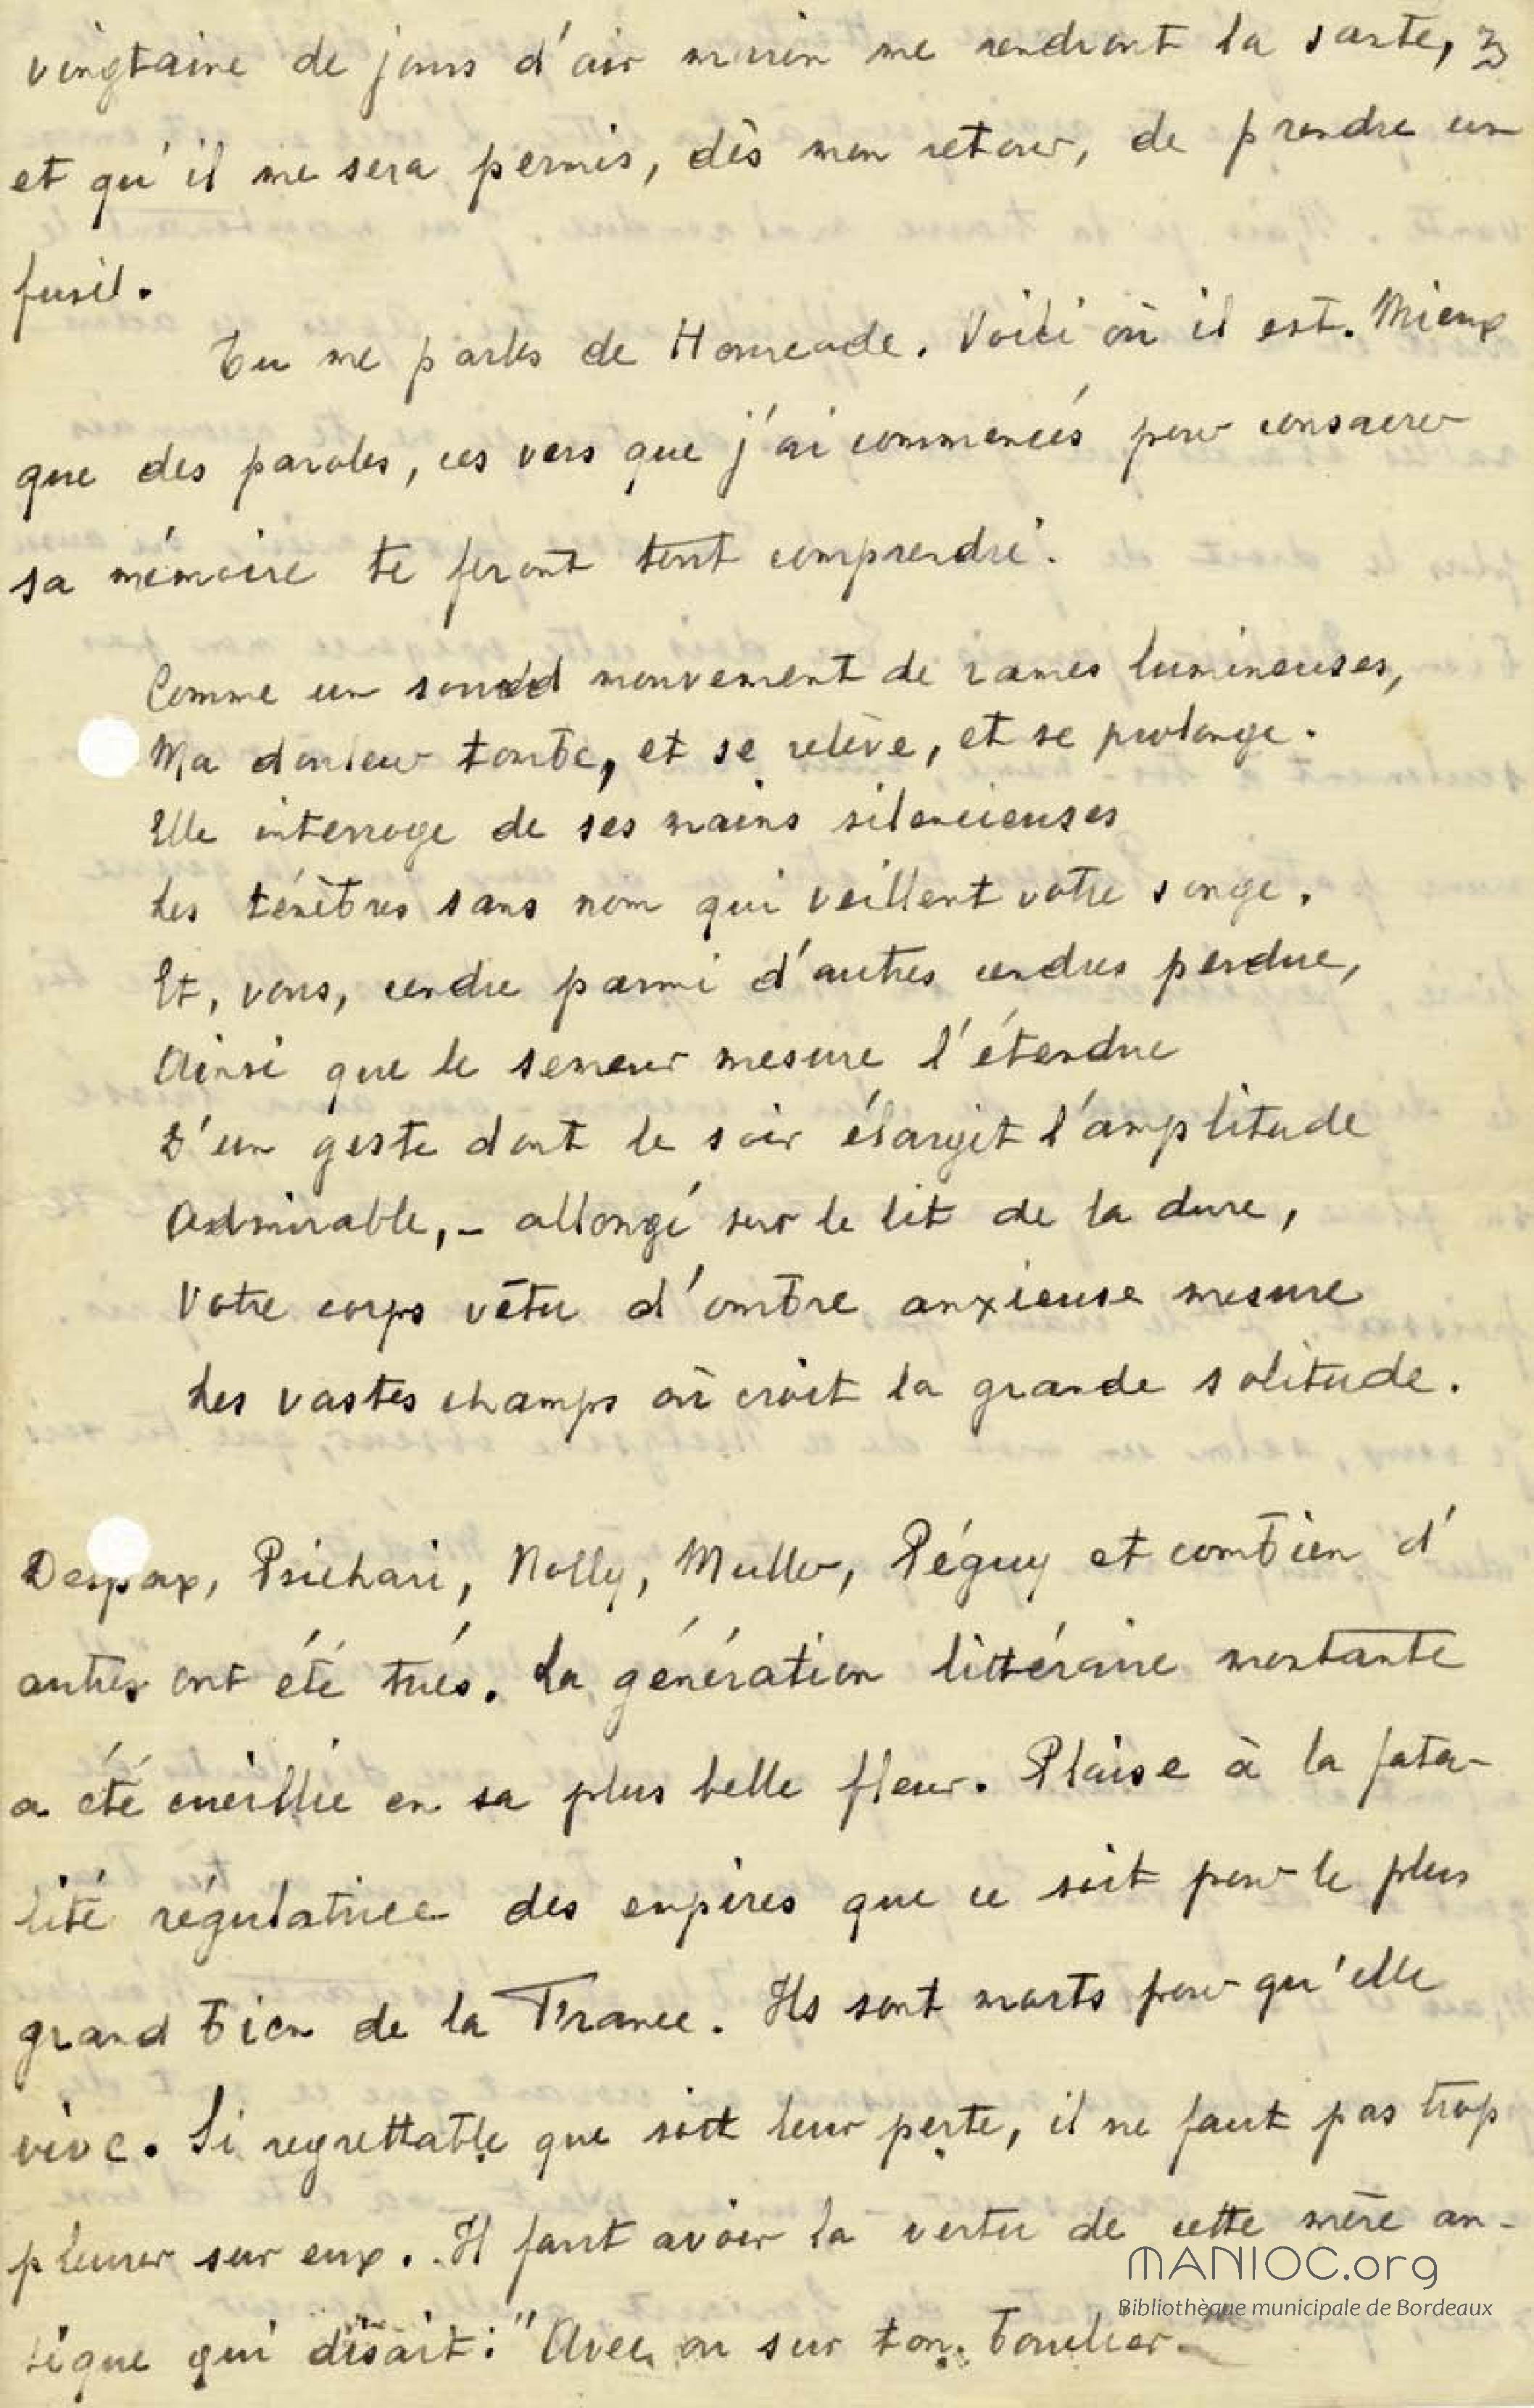 vingtaine de jours d'air marin me rendront la sante, 3
et qu'il me sera permis, dès mon retour, de prendre un
fusil.
Tu me parles de Hourcade. Voici où il est. Mieux
que des paroles, ces vers que j'ai commencés pour consacrer
sa mémoire te feront tout comprendre.
Comme un sourd mouvement de rames lumineuses,
Ma douleur tombe, et se relève, et se prolonge.
Elle interroge de ses mains silencieuses
Les ténèbres sans nom qui veillent votre songe.
Et, vous, cendre parmi d'autres cendres perdue,
Ainsi que le semeur mesure l'étendue
D'un geste dont le soir élargit l'amplitude
Admirable, - allongé sur le lit de la dure,
Votre corps vêtu d'ombre anxieuse mesure
Les vastes champs où croit la grande solitude.
Despax, Psichari, Nolly, Muller, Péguy et combien d'
autres ont été tués. La génération littéraire montante
a été cueillie en sa plus belle fleur. Plaise à la fata-
lité régulatrice des empires que ce soit pour le plus
grand bien de la France. Ils sont morts pour qu'elle
vive. Si regrettable que soit leur perte, il ne faut pas trop
pleurer sur eux. Il faut avoir la vertu de cette mère an-
tique qui disait: "Avec ou sur ton bouclier."
MANIOC.org
Bibliothèque municipale de Bordeaux